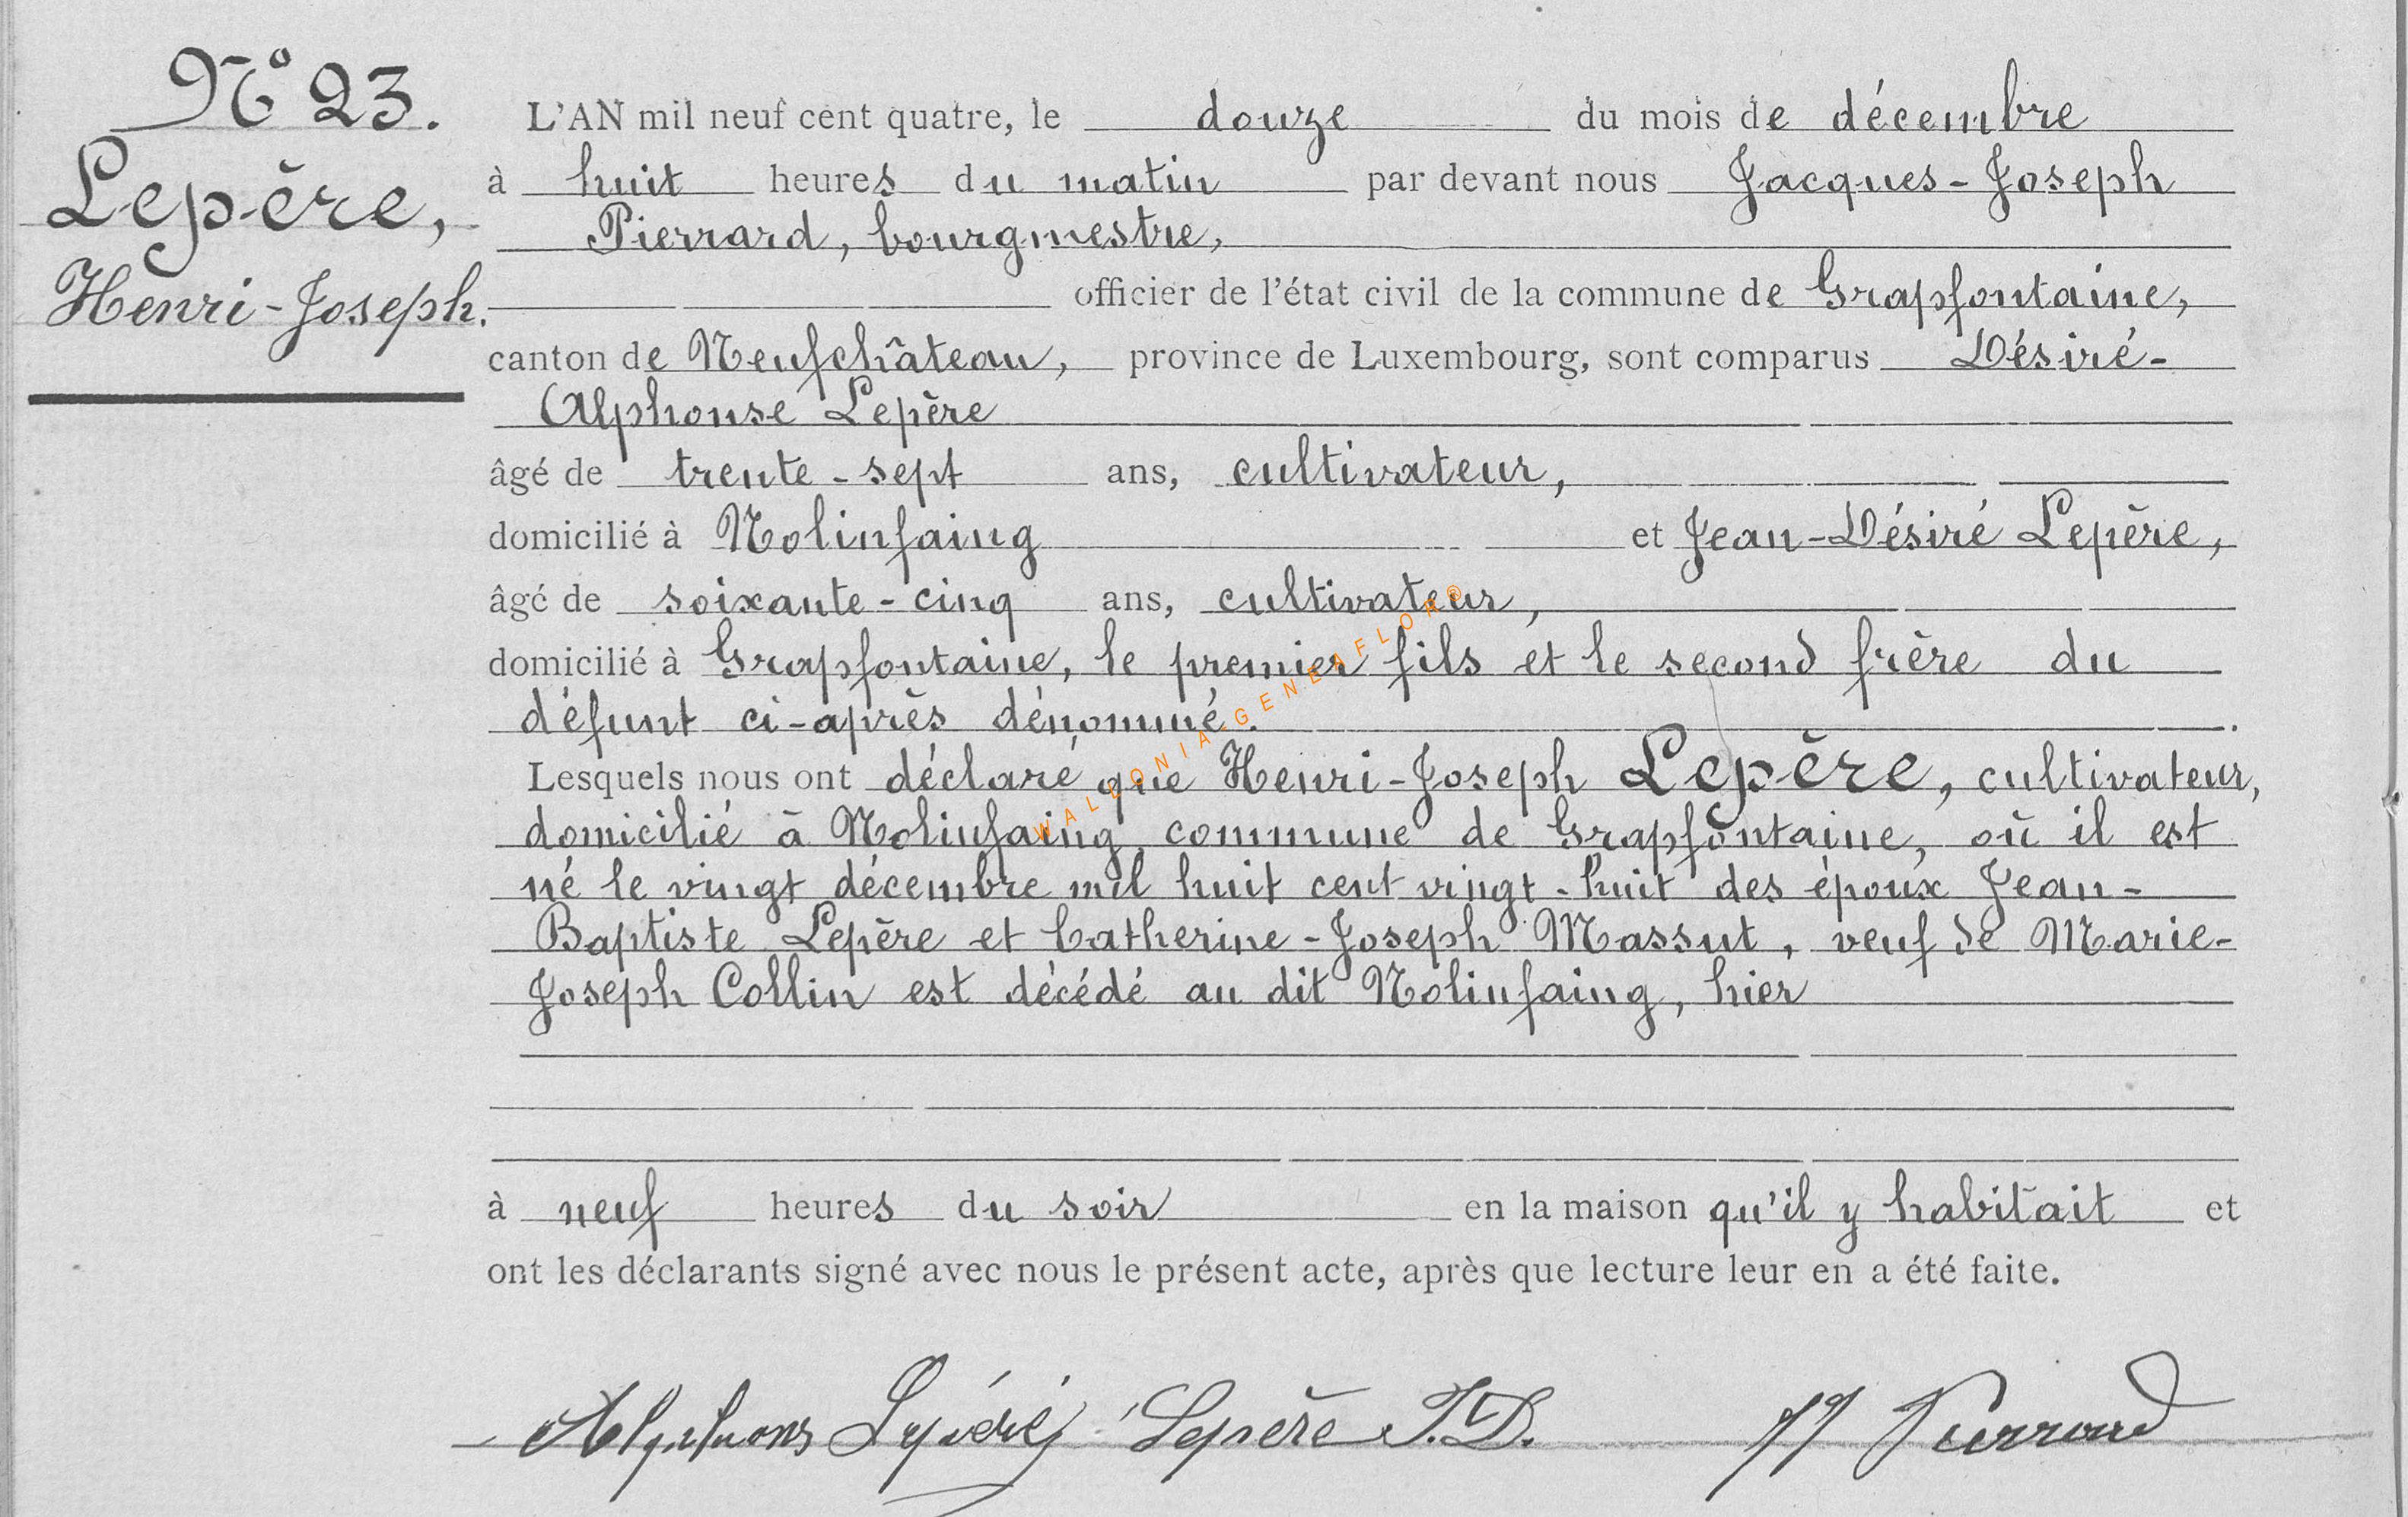 N° 23.
Lepère,
Henri-Joseph.
L'AN mil neuf cent quatre, le douze du mois de décembre
à huit heures du matin par devant nous Jacques-Joseph
Pierrard, bourgmestre,
officier de l'état civil de la commune de Grapfontaine,
canton de Neufchâteau, province de Luxembourg, sont comparus Désiré-
Alphonse Lepère
âgé de trente-sept ans, cultivateur,
domicilié à Nolinfaing et Jean-Désiré Lepère,
âgé de soixante-cinq ans, cultivateur,
domicilié à Grapfontaine, le premier fils et le second frère du
défunt ci-après dénommé.
Lesquels nous ont déclaré que Henri-Joseph Lepère, cultivateur,
domicilié à Nolinfaing, commune de Grapfontaine, où il est
né le vingt décembre mil huit cent vingt-huit des époux Jean-
Baptiste Lepère et Catherine-Joseph Massut, veuf de Marie-
Joseph Collin est décédé au dit Nolinfaing, hier
à neuf heures du soir en la maison qu'il y habitait et
ont les déclarants signé avec nous le présent acte, après que lecture leur en a été faite.
Alphons Lepère Lepère J.D. JJ Pierrard
WALLONIA-GENEAFLOR®